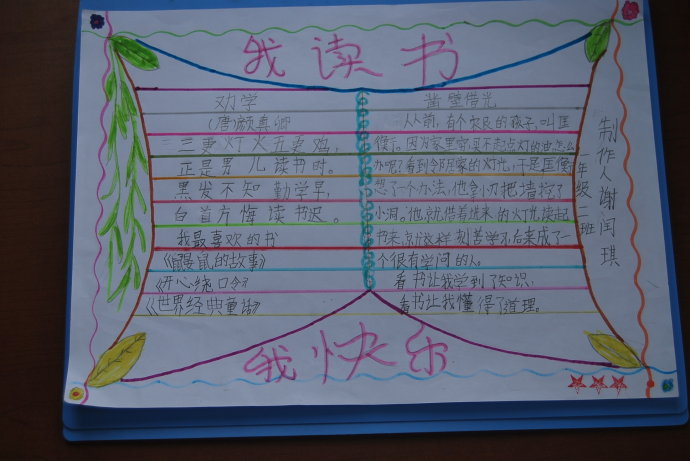 我读书
劝学
(唐)颜真卿
三更灯火五更鸡，
正是男儿读书时。
黑发不知勤学早，
白首方悔读书迟。
我最喜欢的书
《鼹鼠的故事》
《开心绕口令》
《世界经典童话》
凿壁借光
从前，有个农民的孩子，叫匡
衡。因为家里穷，买不起点灯的油，怎么
办呢？看到邻居家的灯光，于是匡衡
想了一个办法，他拿小刀把墙挖了
小洞。他就借着进来的灯光读起
书来，就这样刻苦学习，后来成了一
个很有学问的人。
看书让我学到了知识，
看书让我懂得了道理。
我快乐
年级二班
制作人谢闰琪